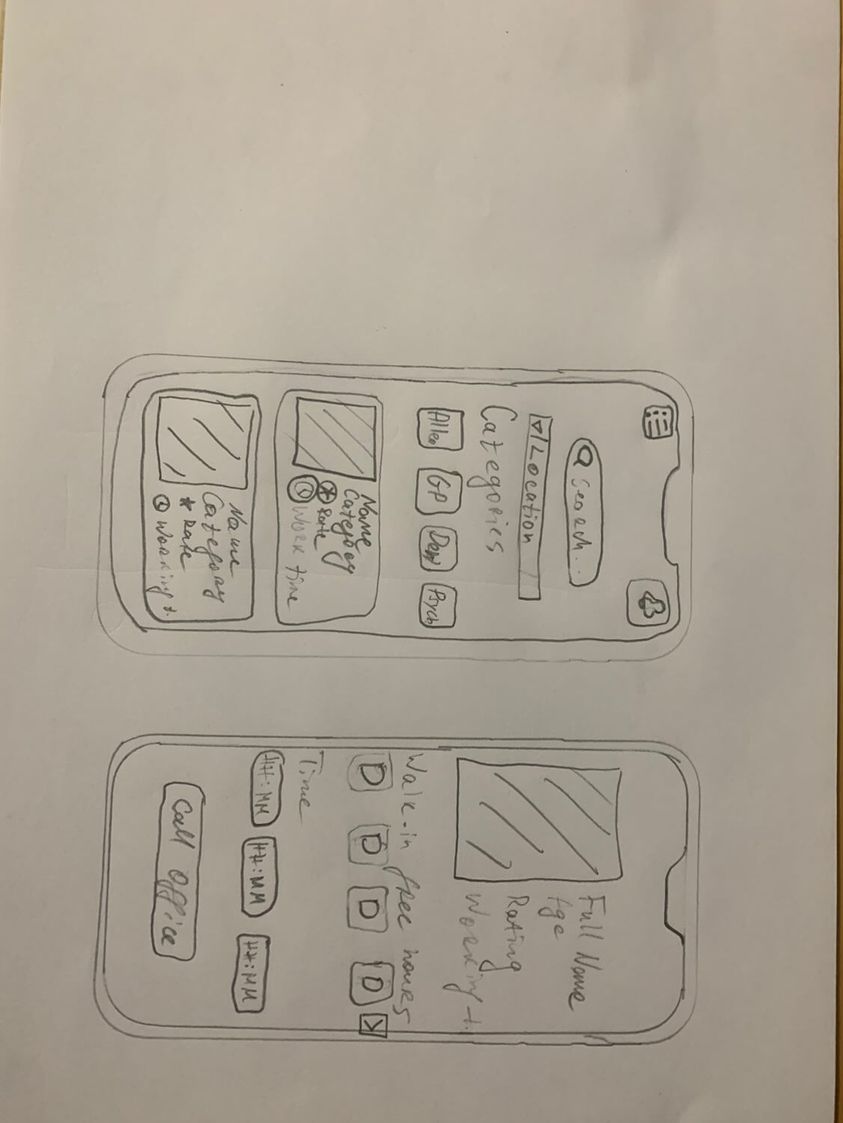 Search...
Location
Categories
Aller
GP
Derm
Psych
Name
Category
Rate
Work time
Name
Category
Rate
Working t.
Full Name
Age
Rating
Working t.
Walk-in free hours
D
D
D
D
Time
HH:MM
HH:MM
HH:MM
Call Office